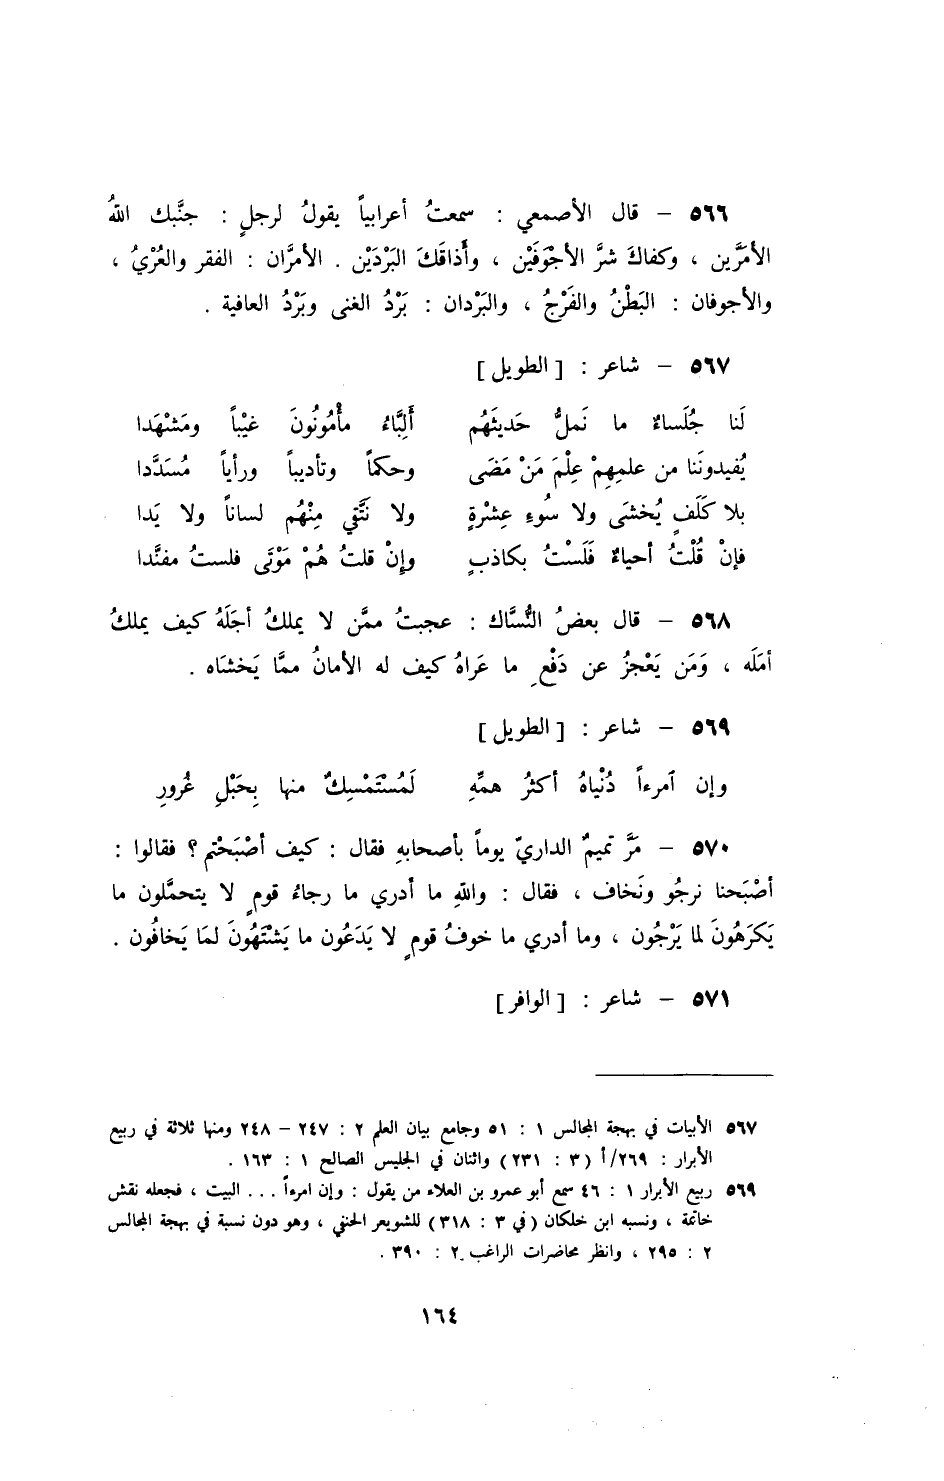 ٥٦٦ – قال الأصمعي : سمعتُ أعرابياً يقولُ لرجلٍ : جنَّبك اللهُ
الأمَرَّين ، وكفاكَ شرَّ الأجْوَفَيْن ، وأَذاقَكَ البَرْدَيْن . الأمرَّان : الفقر والعُرْيُ ،
والأجوفان : البَطْنُ والفَرْجُ ، والبَرْدان : بَرْدُ الغنى وبَرْدُ العافية .
٥٦٧ – شاعر : [ الطويل ]
لَنا جُلَساءُ ما نَملُّ حَديثَهُم أَلِبَّاءُ مأْمُونُونَ غيْباً ومَشْهَدا
يُفيدونَنا من علمِهِمْ عِلْمَ مَنْ مَضَى وحكماً وتأديباً ورأياً مُسَدَّدا
بلا كَلَفٍ يُخشَى ولا سُوءِ عِشْرةٍ ولا نَتَّقي مِنْهُم لساناً ولا يَدا
فإنْ قُلْتُ أحياءٌ فَلَسْتُ بكاذبٍ وإنْ قلتُ هُمْ مَوْتَى فلستُ مفنَّدا
٥٦٨ – قال بعضُ النُّسَّاك : عجبتُ ممَّن لا يملكُ أجَلَهُ كيف يملكُ
أمَلَه ، وَمَن يَعْجزُ عن دَفْعِ ما عَراهُ كيف له الأمانُ ممَّا يَخشَاه .
٥٦٩ – شاعر : [ الطويل ]
وإن ٱمرءاً دُنْياهُ أكثرُ همِّهِ لَمُسْتَمْسِكٌ منها بِحَبْلِ غُرورِ
٥٧٠ – مَرَّ تميمٌ الداريّ يوماً بأصحابهِ فقال : كيف أصْبَحْتم ؟ فقالوا :
أصْبَحنا نرجُو ونَخاف ، فقال : واللهِ ما أدري ما رجاءُ قومٍ لا يتحمَّلون ما
يَكرَهُونَ لما يَرْجُون ، وما أدري ما خوفُ قومٍ لا يَدَعُون ما يَشْتَهُونَ لمَا يَخافُون .
٥٧١ – شاعر : [ الوافر ]
٥٦٧ الأبيات في بهجة المجالس ١ : ٥١ وجامع بيان العلم ٢ : ٢٤٧ – ٢٤٨ ومنها ثلاثة في ربيع
الأبرار : ٢٦٩/أ (٣ : ٢٣١) واثنان في الجليس الصالح ١ : ١٦٣ .
٥٦٩ ربيع الأبرار ١ : ٤٦ سمع أبو عمرو بن العلاء من يقول : وإن امرءاً ... البيت ، فجعله نقش
خاتمة ، ونسبه ابن خلكان (في ٣ : ٣١٨) للشويعر الحنفي ، وهو دون نسبة في بهجة المجالس
٢ : ٢٩٥ ، وانظر محاضرات الراغب ٢ : ٣٩٠ .
١٦٤